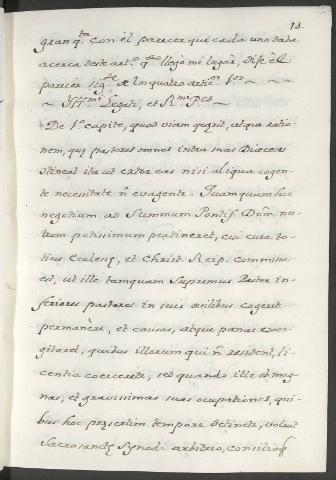 14.
gran q.^tn con el parecer que cada uno daba
acerca deste art.º q.^do llegò mi lugar, dixe el
parecer sig.^te de los quatro artic.^os
Ill.^mi Legati, et R.^mi P.es
De 1.º capite, quod viam querit, atque ratio-
nem, quę pastores omnes intra suas Dioeceses
obtineat ita ut extra eas nisi aliqua cogen-
te necesitate ñ evagentr. Quamquam hoc
negotium ad Summum Pontif. Dñm nos-
trum potissimum pertineret, cui cura to-
tius Ecclesię, et Christ. Reip. commissa
est, ut ille tamquam Supremus Pastor in-
feriores pastores in suis ovilibus cogeret
permanere, et causas, atque pœnas exco-
gitaret, quibus illorum qui ñ resident, li-
centia coerceretr, sed quando ille ob mag-
nas, et gravissimas suas ocupationes, qui-
bus hoc pręsertim tempore detinetr, voluit
Sacrosanctę Synodi arbitrio, consilioq